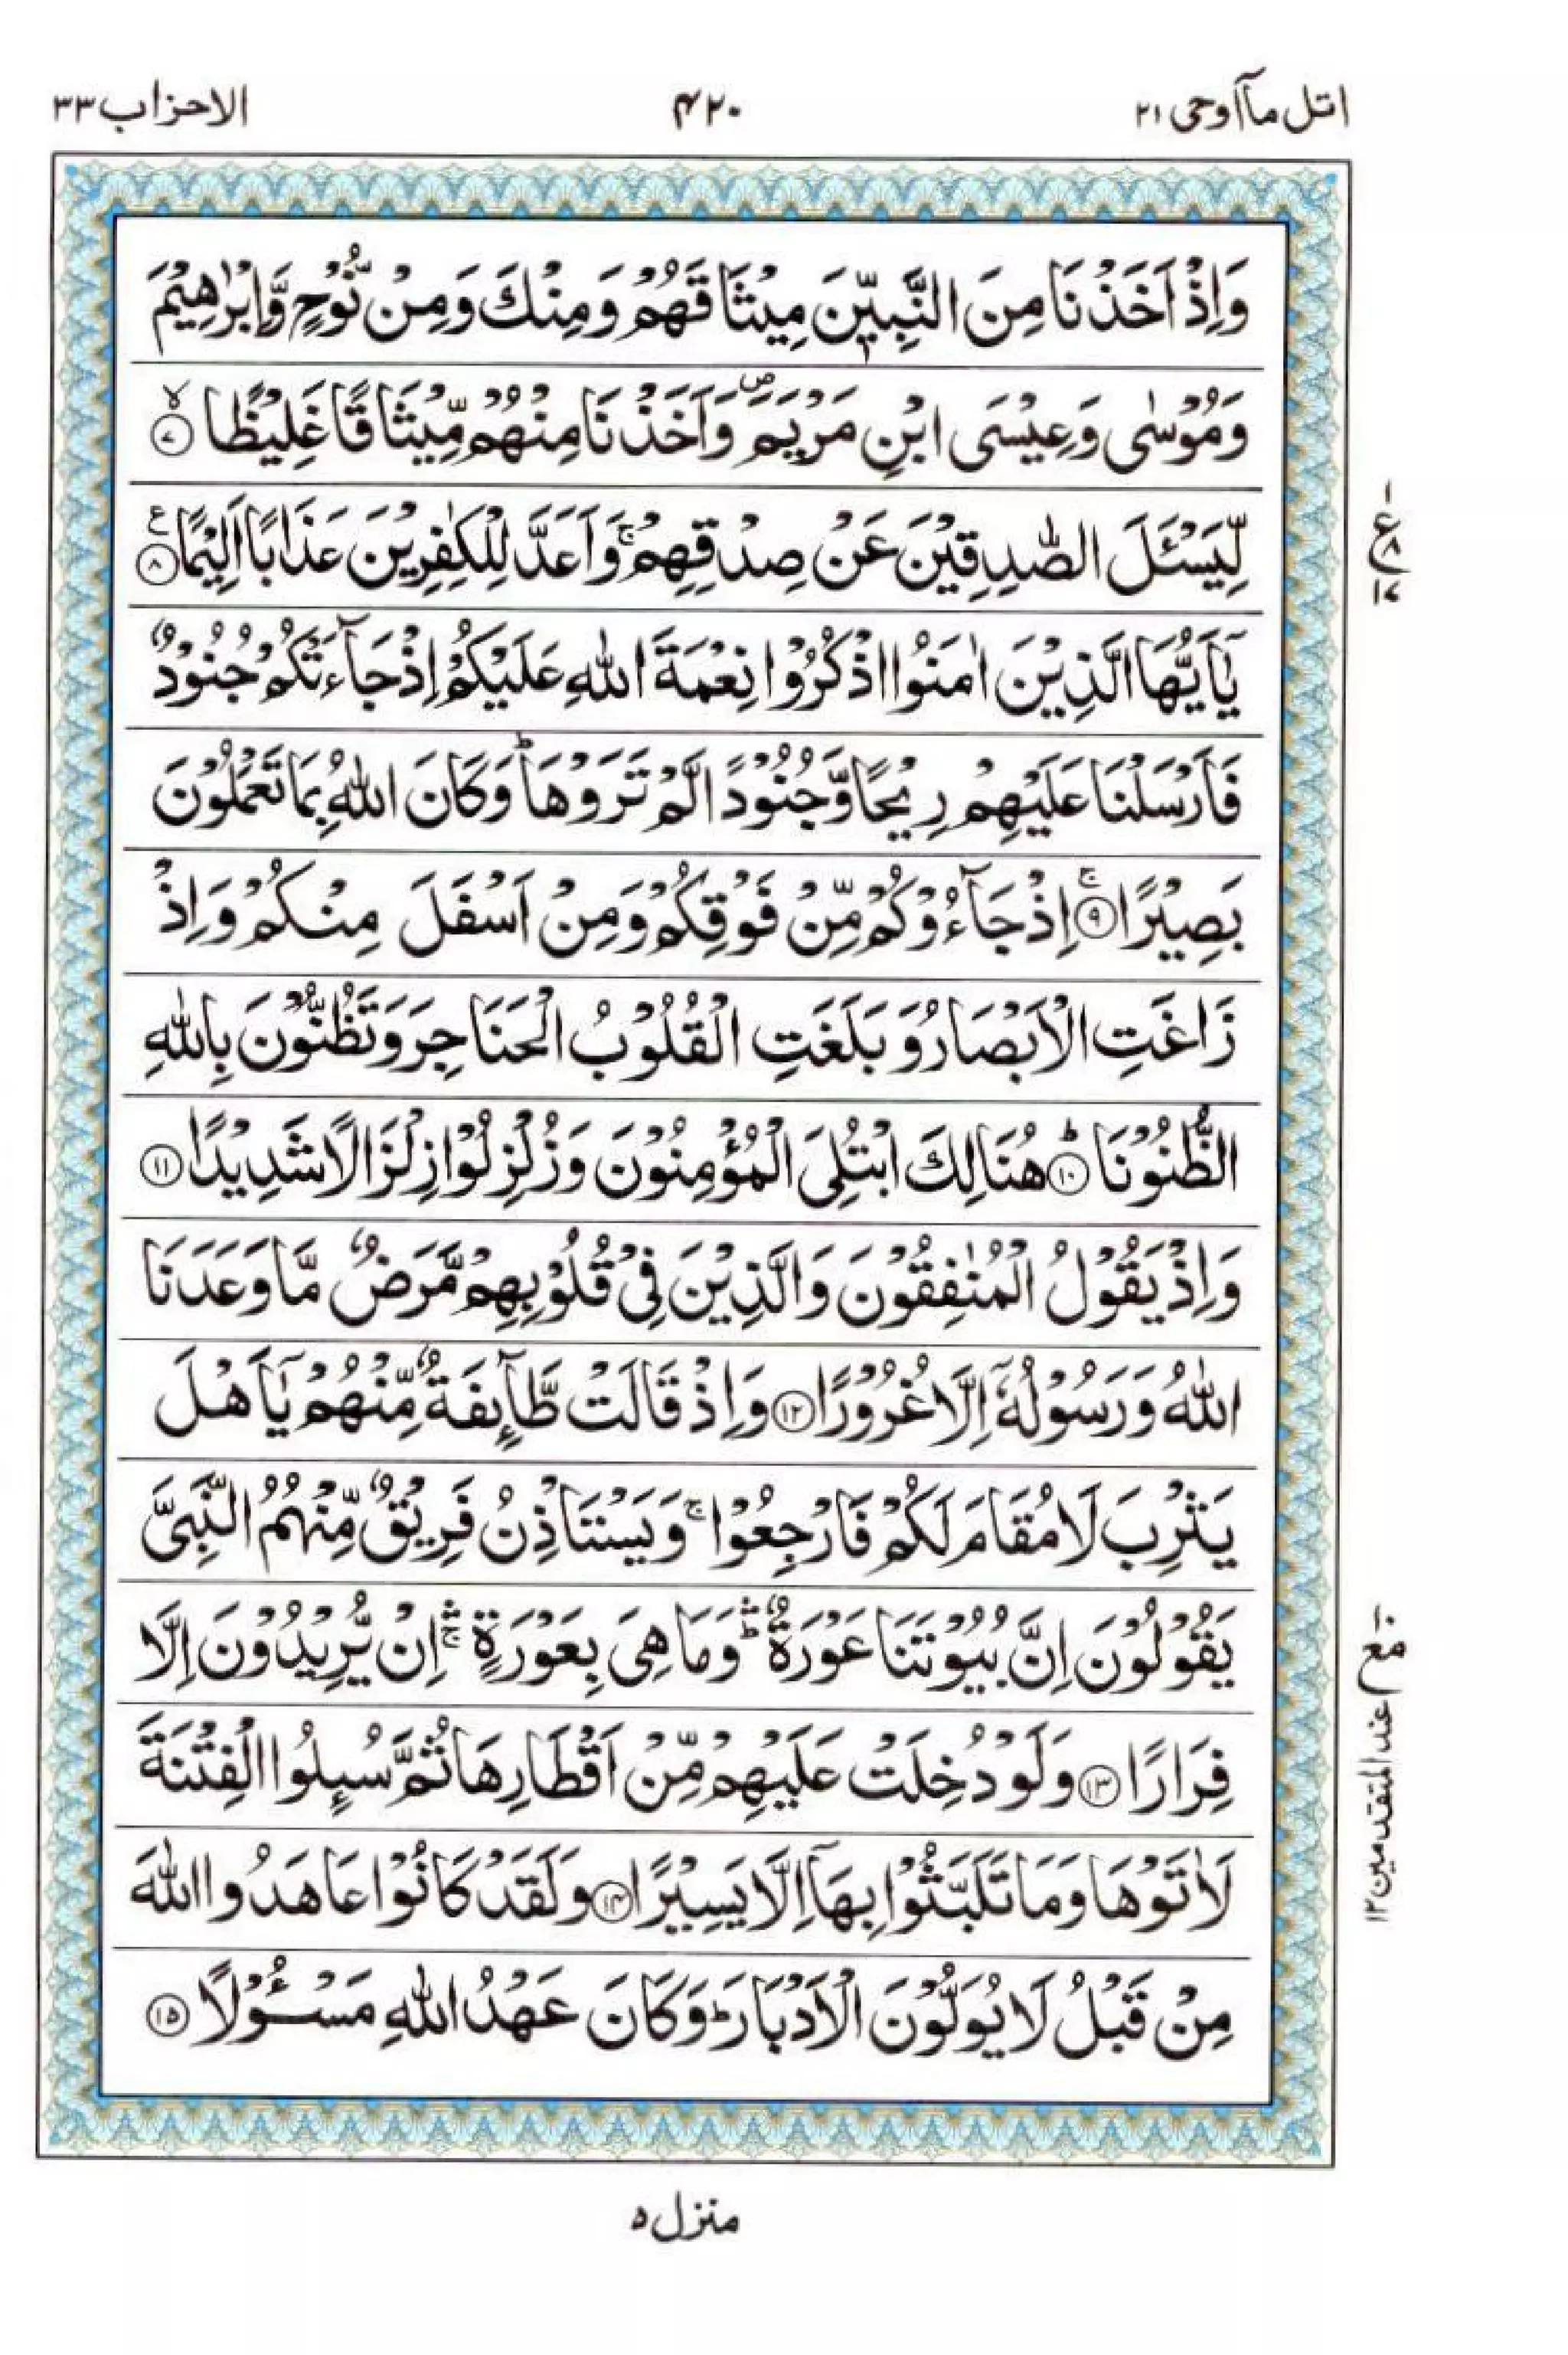 اتل ماۤ اوحی ۲۱
۴۲۰
الاحزاب ۳۳
وَاِذْ اَخَذْنَا مِنَ النَّبِیّٖنَ مِیْثَاقَهُمْ وَمِنْكَ وَمِنْ نُّوْحٍ وَّاِبْرٰهِیْمَ
وَمُوْسٰی وَعِیْسَی ابْنِ مَرْیَمَ ۪ وَاَخَذْنَا مِنْهُمْ مِّیْثَاقًا غَلِیْظًا ۙ﴿۷﴾
لِّیَسْـَٔلَ الصّٰدِقِیْنَ عَنْ صِدْقِهِمْ ۚ وَاَعَدَّ لِلْكٰفِرِیْنَ عَذَابًا اَلِیْمًا ﴿۸﴾ ع
یٰۤاَیُّهَا الَّذِیْنَ اٰمَنُوا اذْكُرُوْا نِعْمَةَ اللّٰهِ عَلَیْكُمْ اِذْ جَآءَتْكُمْ جُنُوْدٌ
فَاَرْسَلْنَا عَلَیْهِمْ رِیْحًا وَّجُنُوْدًا لَّمْ تَرَوْهَا ؕ وَكَانَ اللّٰهُ بِمَا تَعْمَلُوْنَ
بَصِیْرًا ۚ﴿۹﴾ اِذْ جَآءُوْكُمْ مِّنْ فَوْقِكُمْ وَمِنْ اَسْفَلَ مِنْكُمْ وَاِذْ
زَاغَتِ الْاَبْصَارُ وَبَلَغَتِ الْقُلُوْبُ الْحَنَاجِرَ وَتَظُنُّوْنَ بِاللّٰهِ
الظُّنُوْنَا ؕ﴿۱۰﴾ هُنَالِكَ ابْتُلِیَ الْمُؤْمِنُوْنَ وَزُلْزِلُوْا زِلْزَالًا شَدِیْدًا ﴿۱۱﴾
وَاِذْ یَقُوْلُ الْمُنٰفِقُوْنَ وَالَّذِیْنَ فِیْ قُلُوْبِهِمْ مَّرَضٌ مَّا وَعَدَنَا
اللّٰهُ وَرَسُوْلُهٗۤ اِلَّا غُرُوْرًا ﴿۱۲﴾ وَاِذْ قَالَتْ طَّآىِٕفَةٌ مِّنْهُمْ یٰۤاَهْلَ
یَثْرِبَ لَا مُقَامَ لَكُمْ فَارْجِعُوْا ۚ وَیَسْتَاْذِنُ فَرِیْقٌ مِّنْهُمُ النَّبِیَّ
یَقُوْلُوْنَ اِنَّ بُیُوْتَنَا عَوْرَةٌ ؕۛ وَمَا هِیَ بِعَوْرَةٍ ۚۛ اِنْ یُّرِیْدُوْنَ اِلَّا
فِرَارًا ﴿۱۳﴾ وَلَوْ دُخِلَتْ عَلَیْهِمْ مِّنْ اَقْطَارِهَا ثُمَّ سُىِٕلُوا الْفِتْنَةَ
لَاٰتَوْهَا وَمَا تَلَبَّثُوْا بِهَاۤ اِلَّا یَسِیْرًا ﴿۱۴﴾ وَلَقَدْ كَانُوْا عَاهَدُوا اللّٰهَ
مِنْ قَبْلُ لَا یُوَلُّوْنَ الْاَدْبَارَ ؕ وَكَانَ عَهْدُ اللّٰهِ مَسْـُٔوْلًا ﴿۱۵﴾
ع ۸ ۱۷
مع ۱۰ عند المتقدمین ۱۲
منزل ۵